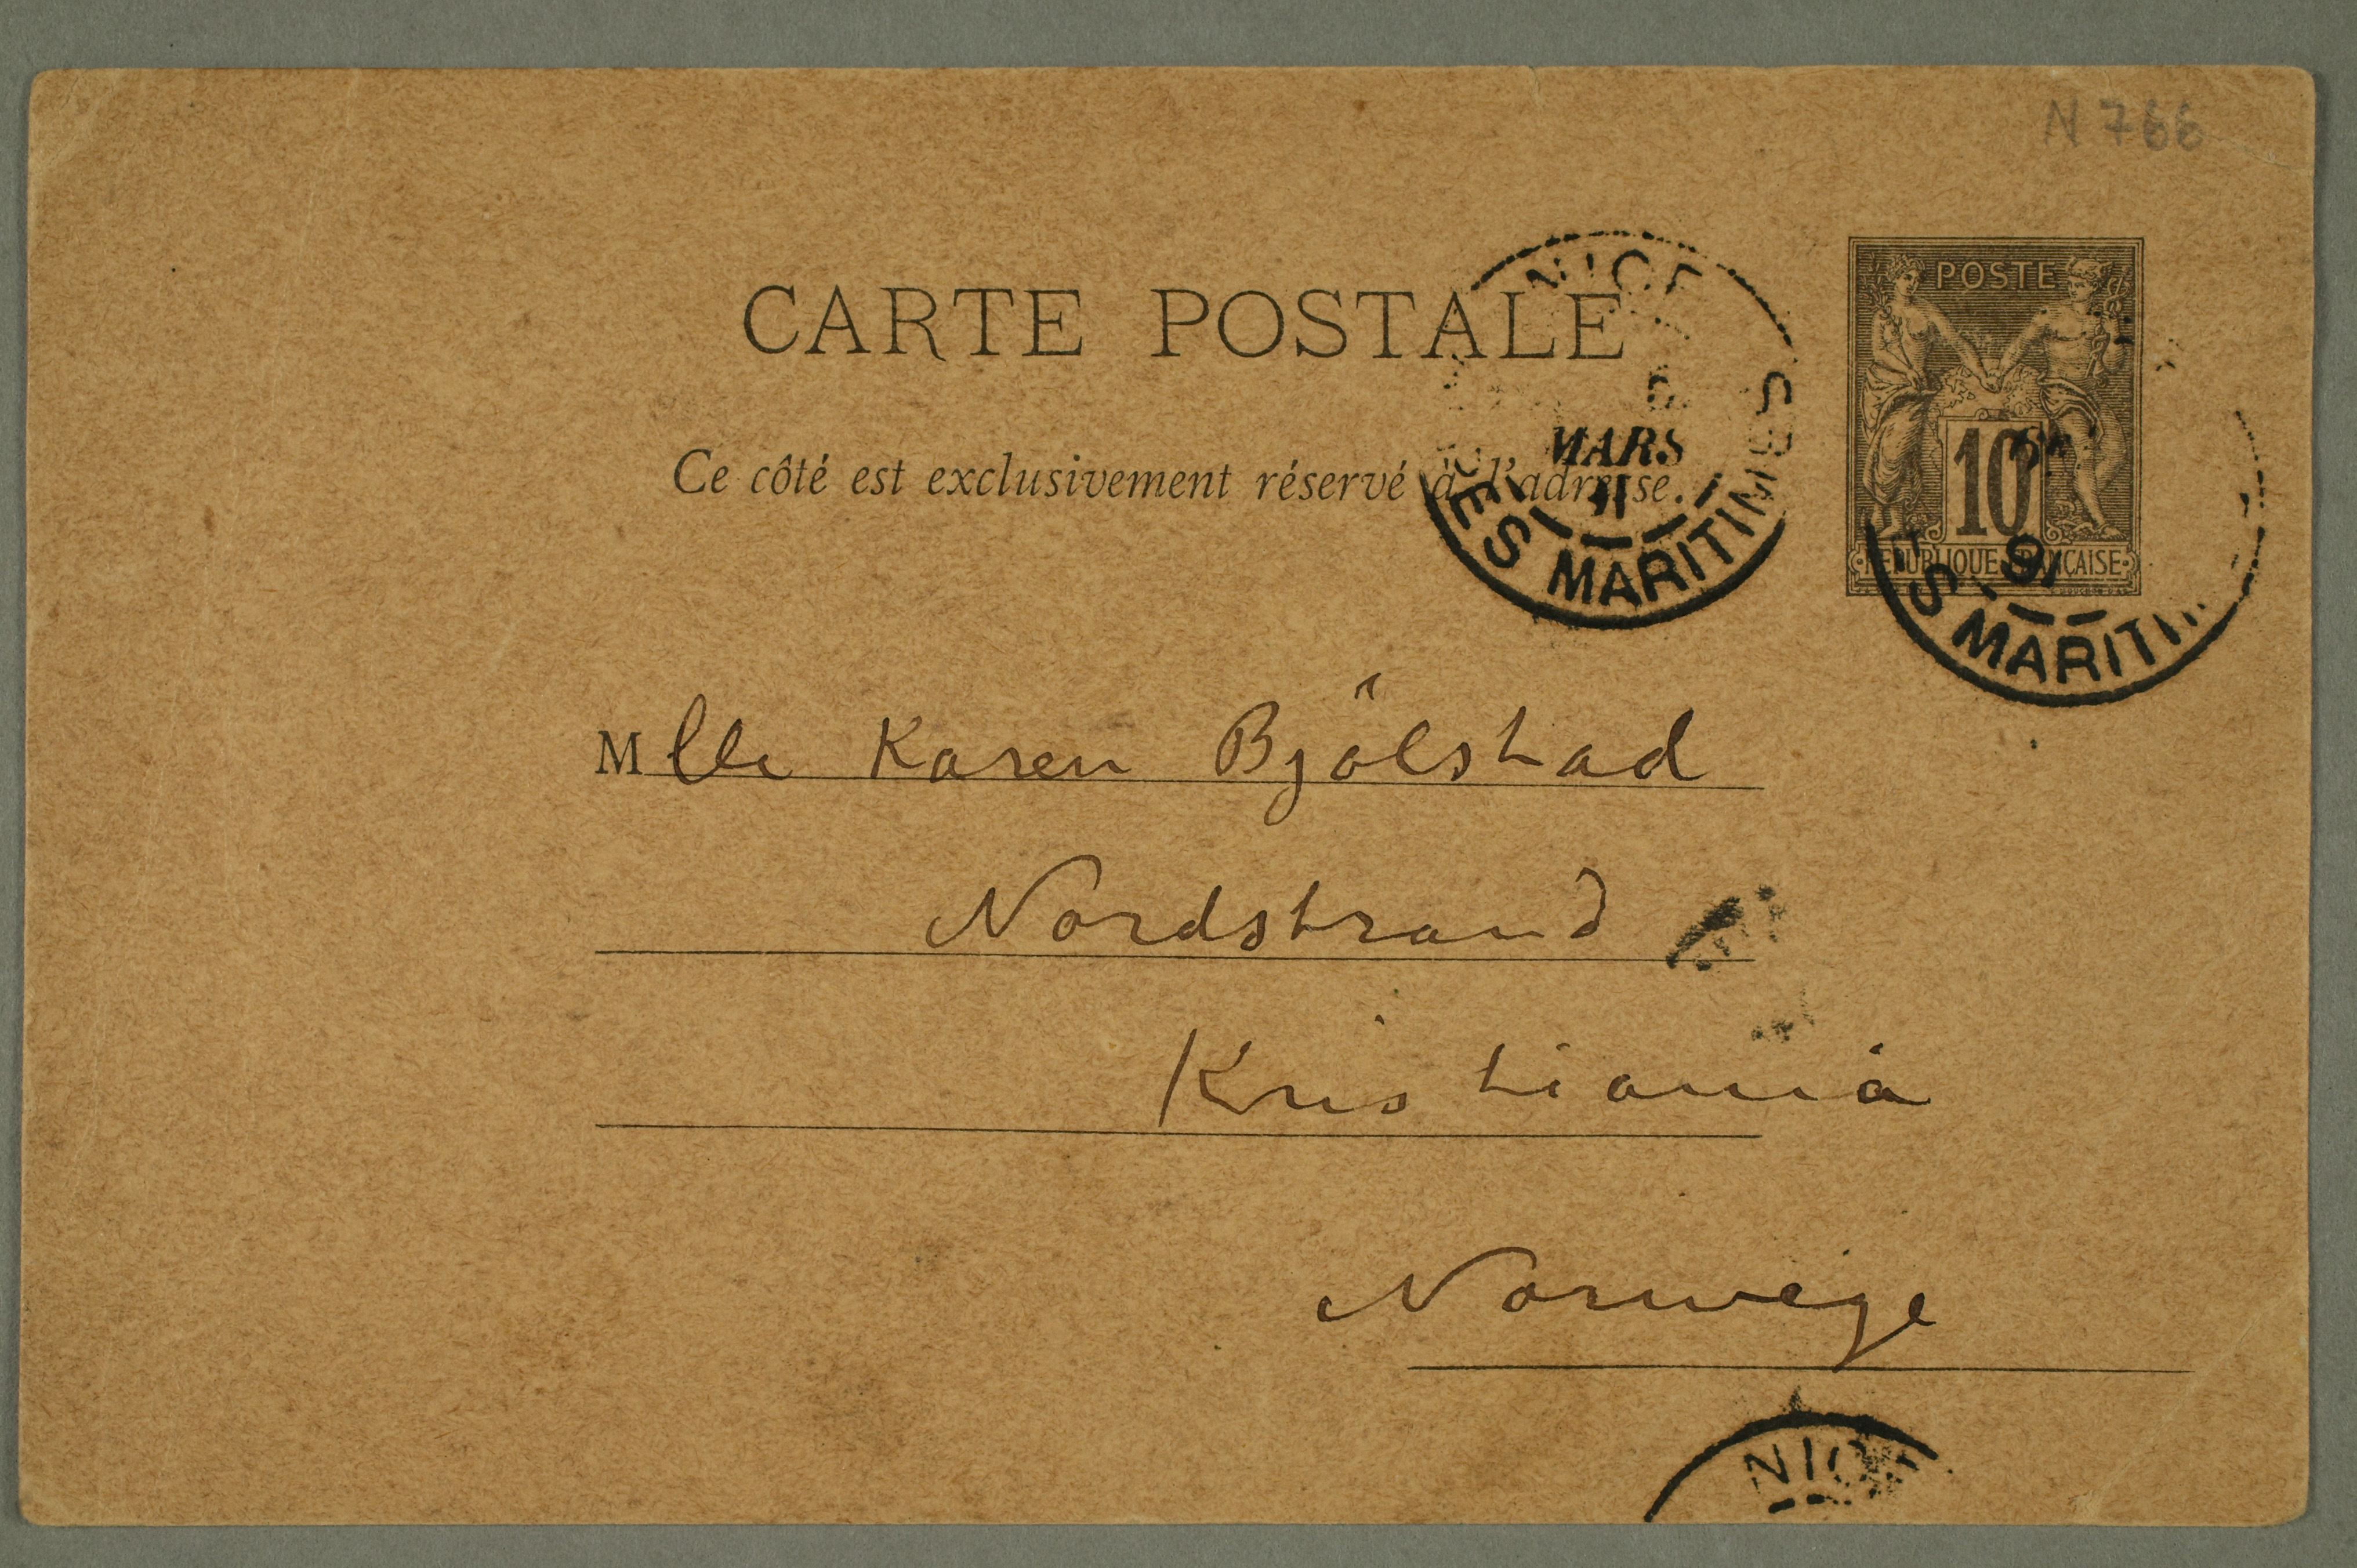 N 766
CARTE POSTALE
Ce côté est exclusivement réservé à l'adresse.
NICE
MARS
91
ALPES MARITIMES
POSTE
10
REPUBLIQUE FRANÇAISE
91
ES MARITI
Mlle Karen Bjölstad
Nordstrand
Kristiania
Norwège
NIC